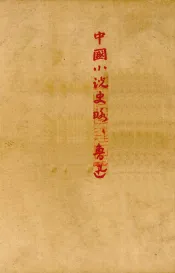 中國小說史略 魯迅